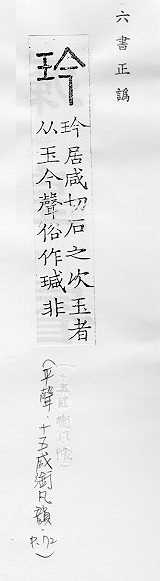 六書正譌
玪
玪居咸切石之次玉者
从玉今聲俗作瑊非
(平聲·十五咸銜凡韻·P.72)